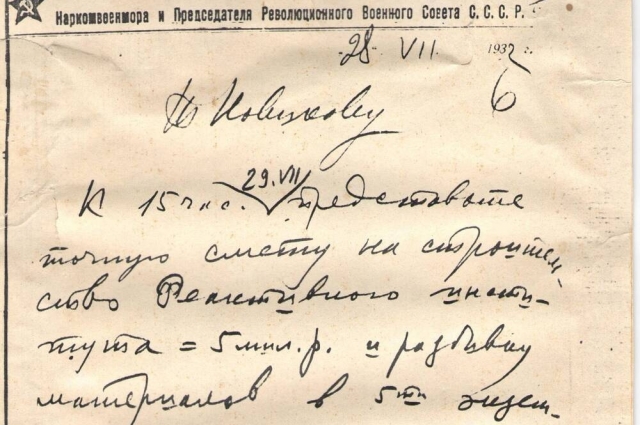 Наркомвоенмора и Председателя Революционного Военного Совета С. С. С. Р.
28 VII 1932 г.
6
Т Новикову
29.VII
К 15 час. представьте
точную смету на строитель
ство Реактивного инсти-
тута = 5 мил. р. и разбивку
материалов в 5ти экзем-